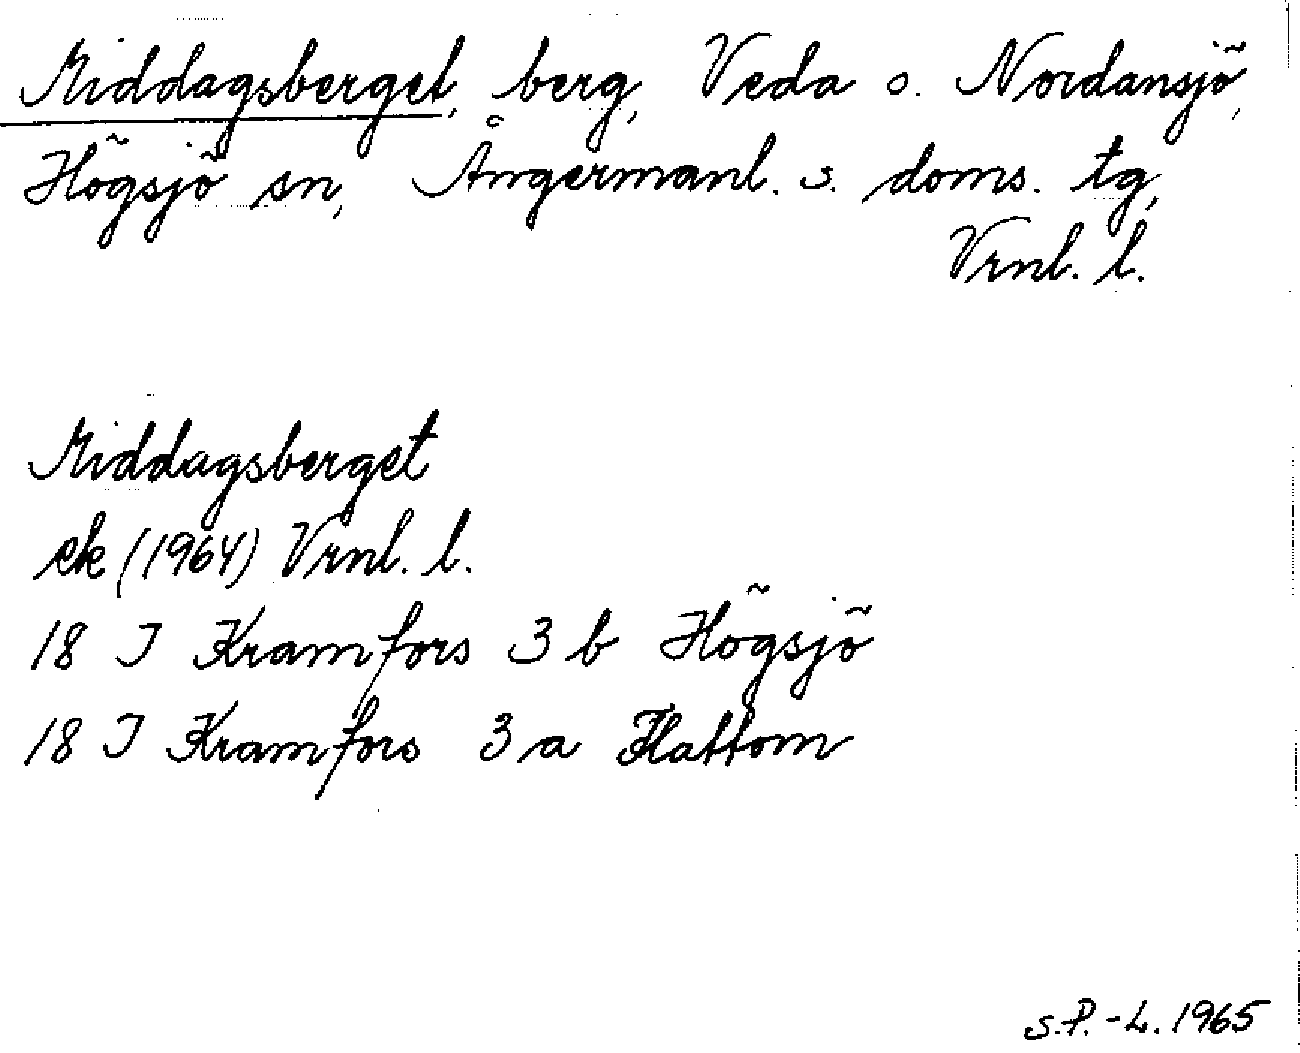 Middagsberget, berg, Veda o. Nordansjö,
Högsjö sn, Ångermanl. s. doms. tg,
Vrnl. l.
Middagsberget
ek (1964) Vrnl. l.
18 I Kramfors 3 b Högsjö
18 I Kramfors 3 a Flattom
S.P.-L. 1965